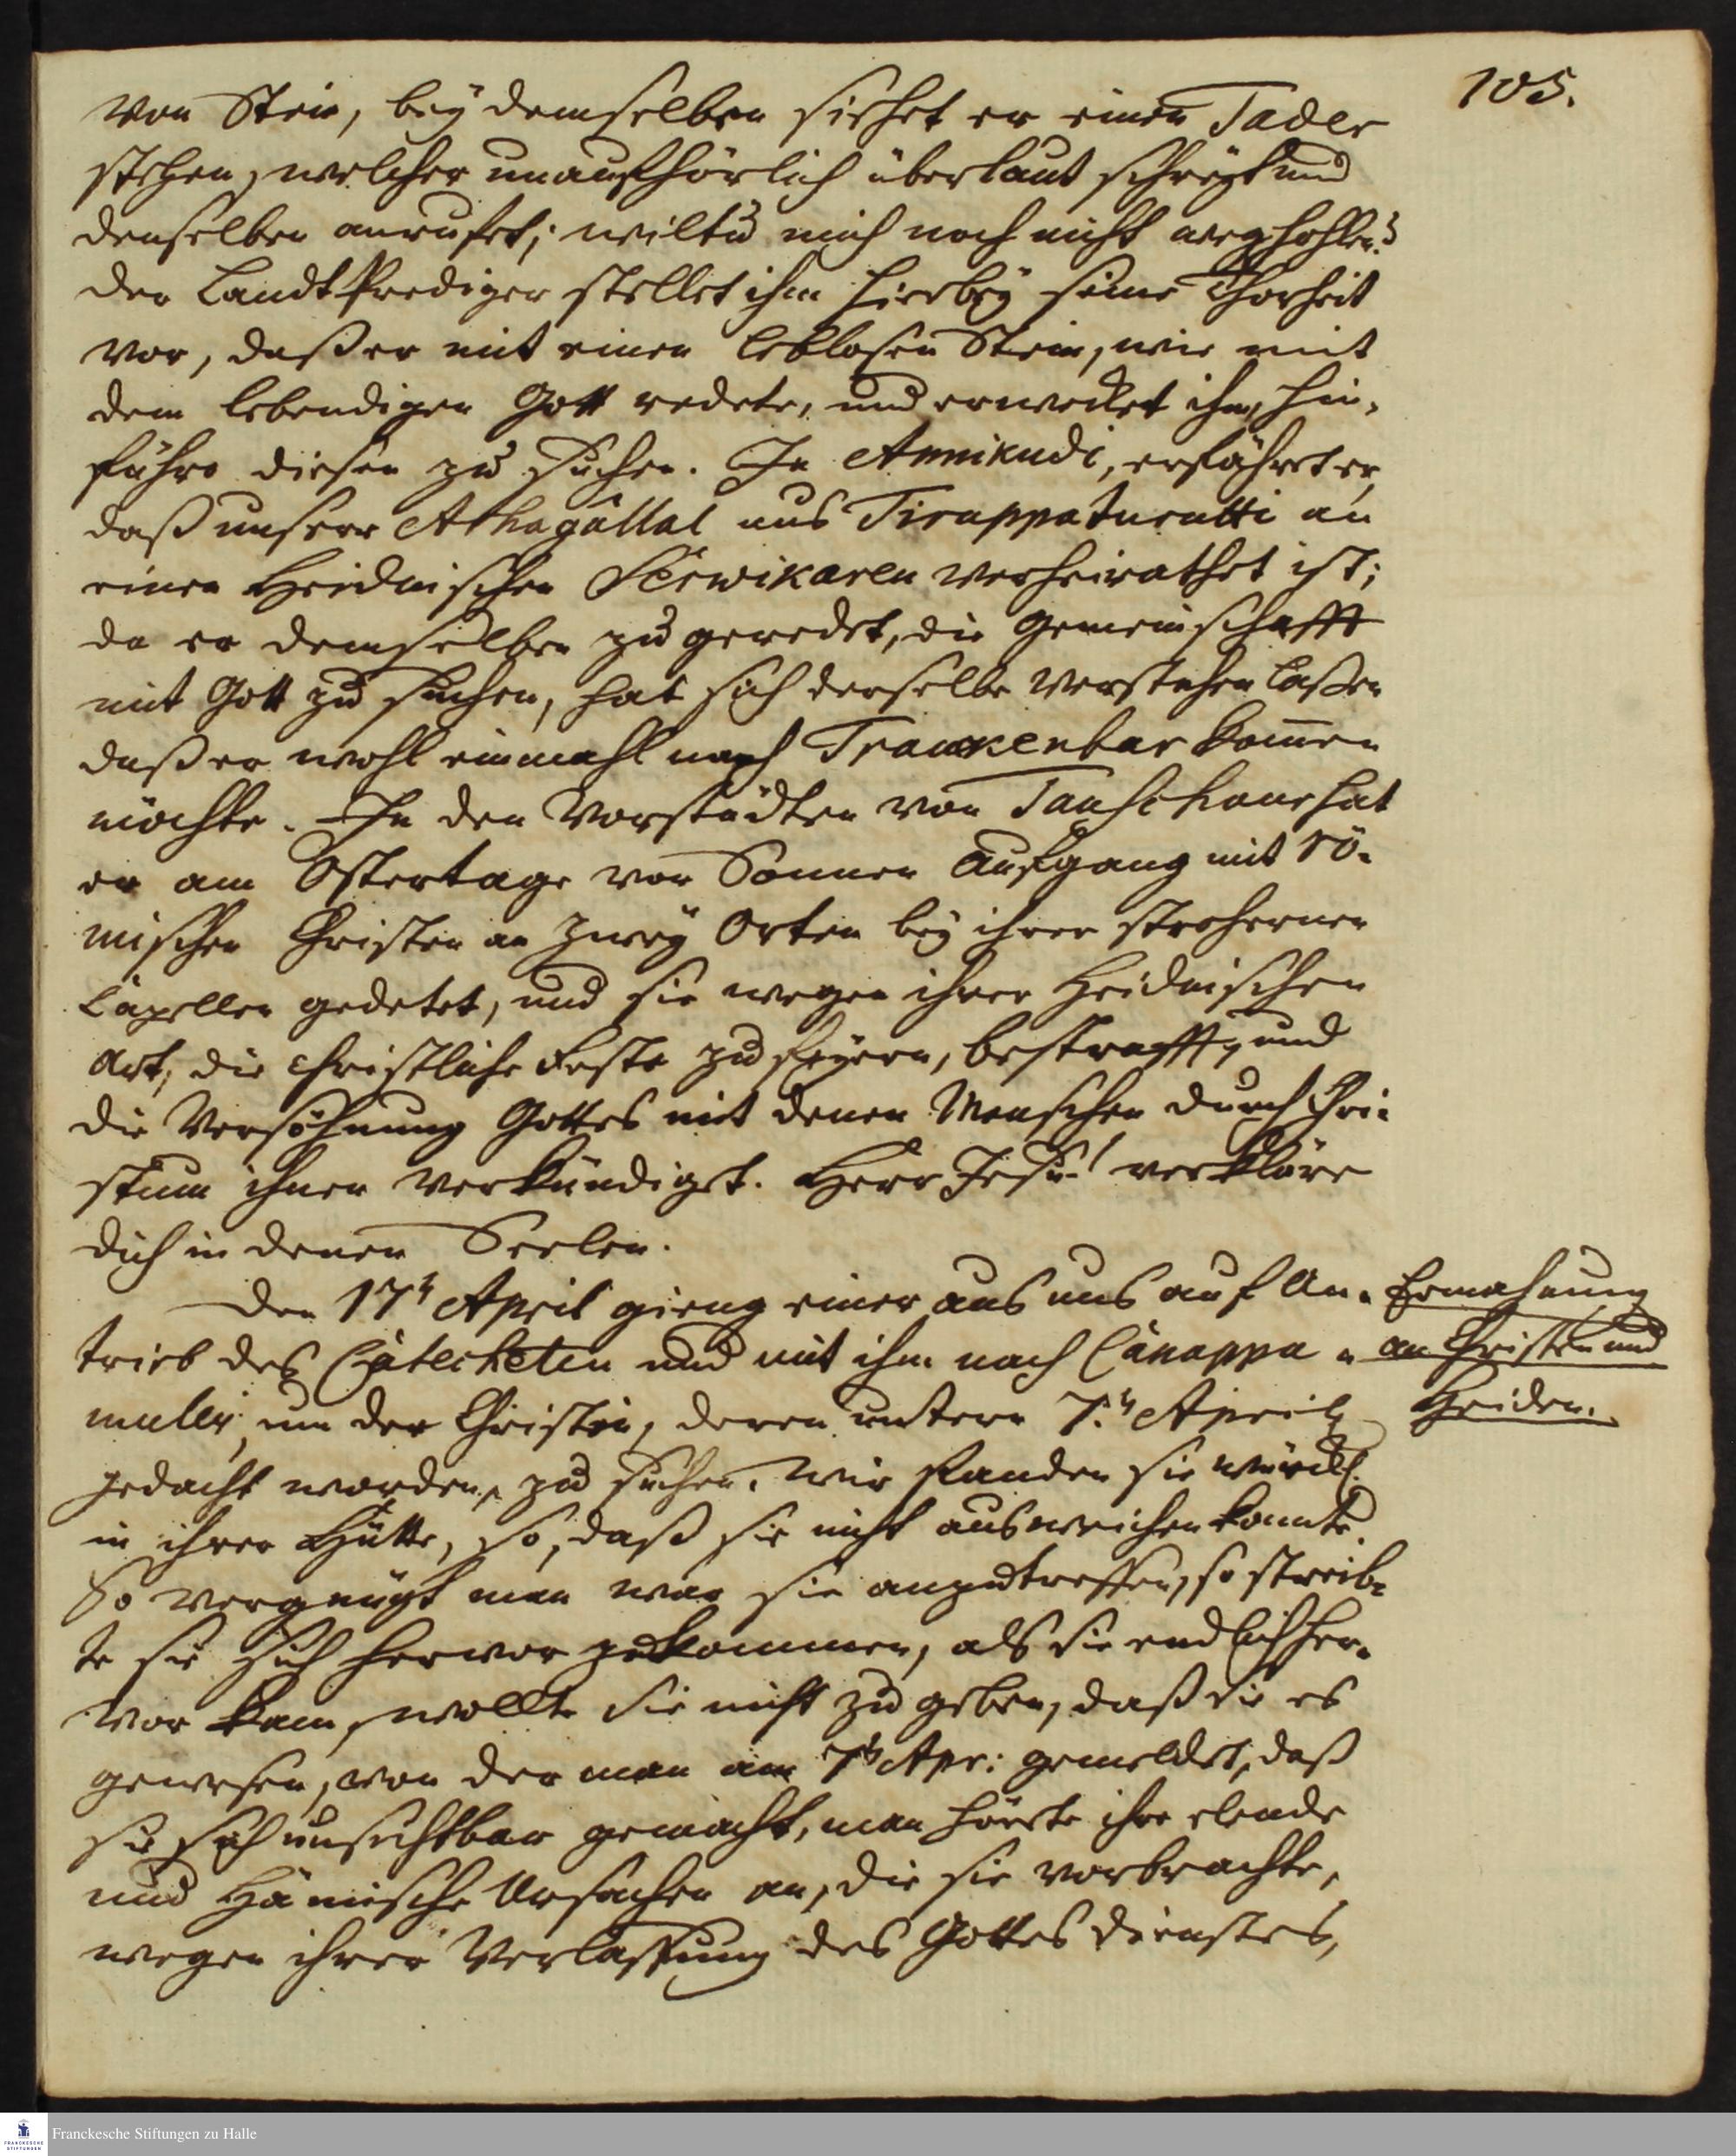 105.
von Stein, bey demselben siehet er einen Tader
stehen, welcher unaufhörlich überlaut schreyt und
denselben anrufet; wiltu mich noch nicht weghohlen?
der LandtPrediger stellet ihm hierbey seine Thorheit
vor, daß er mit einen leblosen Stein, wie mit
dem lebendigen Gott redete, und erwecket ihn, hin-
führo diesen zu suchen. In Annikudi, erfähret er,
daß unsere Athagâllal aus Tirappaturutti an
einen Heidnischen Serwikaren verheirathet ist;
da er demselben zu geredet, die Gemeinschafft
mit Gott zu suchen, hat sich derselbe verstehen laßen
daß er wohl einmahl nach Trankenbar kom̄en
möchte. In den Vorstädten von Tanschaur hat
er am Ostertage vor Sonnen Aufgang mit Rö-
mischen Christen an zwey Orten bey ihren strohernen
Capellen gedetet, und sie wegen ihrer Heidnischen
Art, die christliche Feste zu feyern, bestrafft, und
die Versöhnung Gottes mit denen Menschen durch Chri-
stum ihnen verkündiget. Herr Jesu! verkläre
dich in denen Seelen.
Den 17t April gieng einer aus uns auf An-
trieb des Catecheten und mit ihm nach Canappa-
mulei, um der Christin, deren unterm 7.t April
gedacht worden, zu suchen. Wir fanden sie würckl.
in ihrer Hütte, so, daß sie nicht ausweichen konnte.
So vergnügt man war sie anzutreffen, so streüb-
te sie sich hervor zu kommen, als sie endlich her-
vor kam, wollte sie nicht zu geben, daß sie es
gewesen, von der man am 7t Apr: gemeldet, daß
sie sich unsichtbar gemacht, man hörte ihre elende
und Hämische Ursachen an, die sie vorbrachte,
wegen ihrer Verlassung des Gottes dienstes,
Ermahnung
an Christen und
Heiden.
Franckesche Stiftungen zu Halle
FRANCKESCHE
STIFTUNGEN